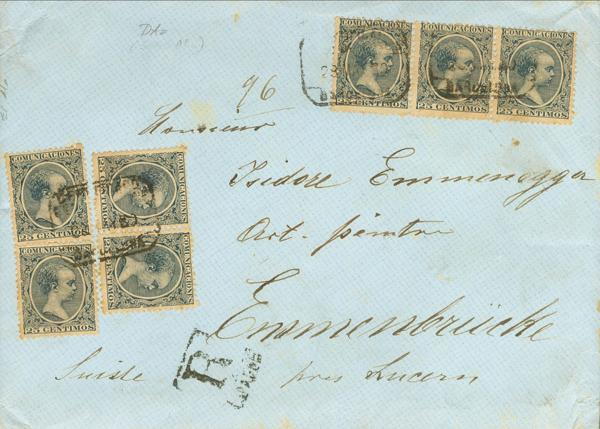 COMUNICACIONES COMUNICACIONES COMUNICACIONES
25 CENTIMOS 25 CENTIMOS 25 CENTIMOS
96
Monsieur
Isidore Emmenegger
Art. peintre
Emmenbrücke
Suisse près Lucern
R
COMUNICACIONES COMUNICACIONES
25 CENTIMOS 25 CENTIMOS
COMUNICACIONES COMUNICACIONES
25 CENTIMOS 25 CENTIMOS